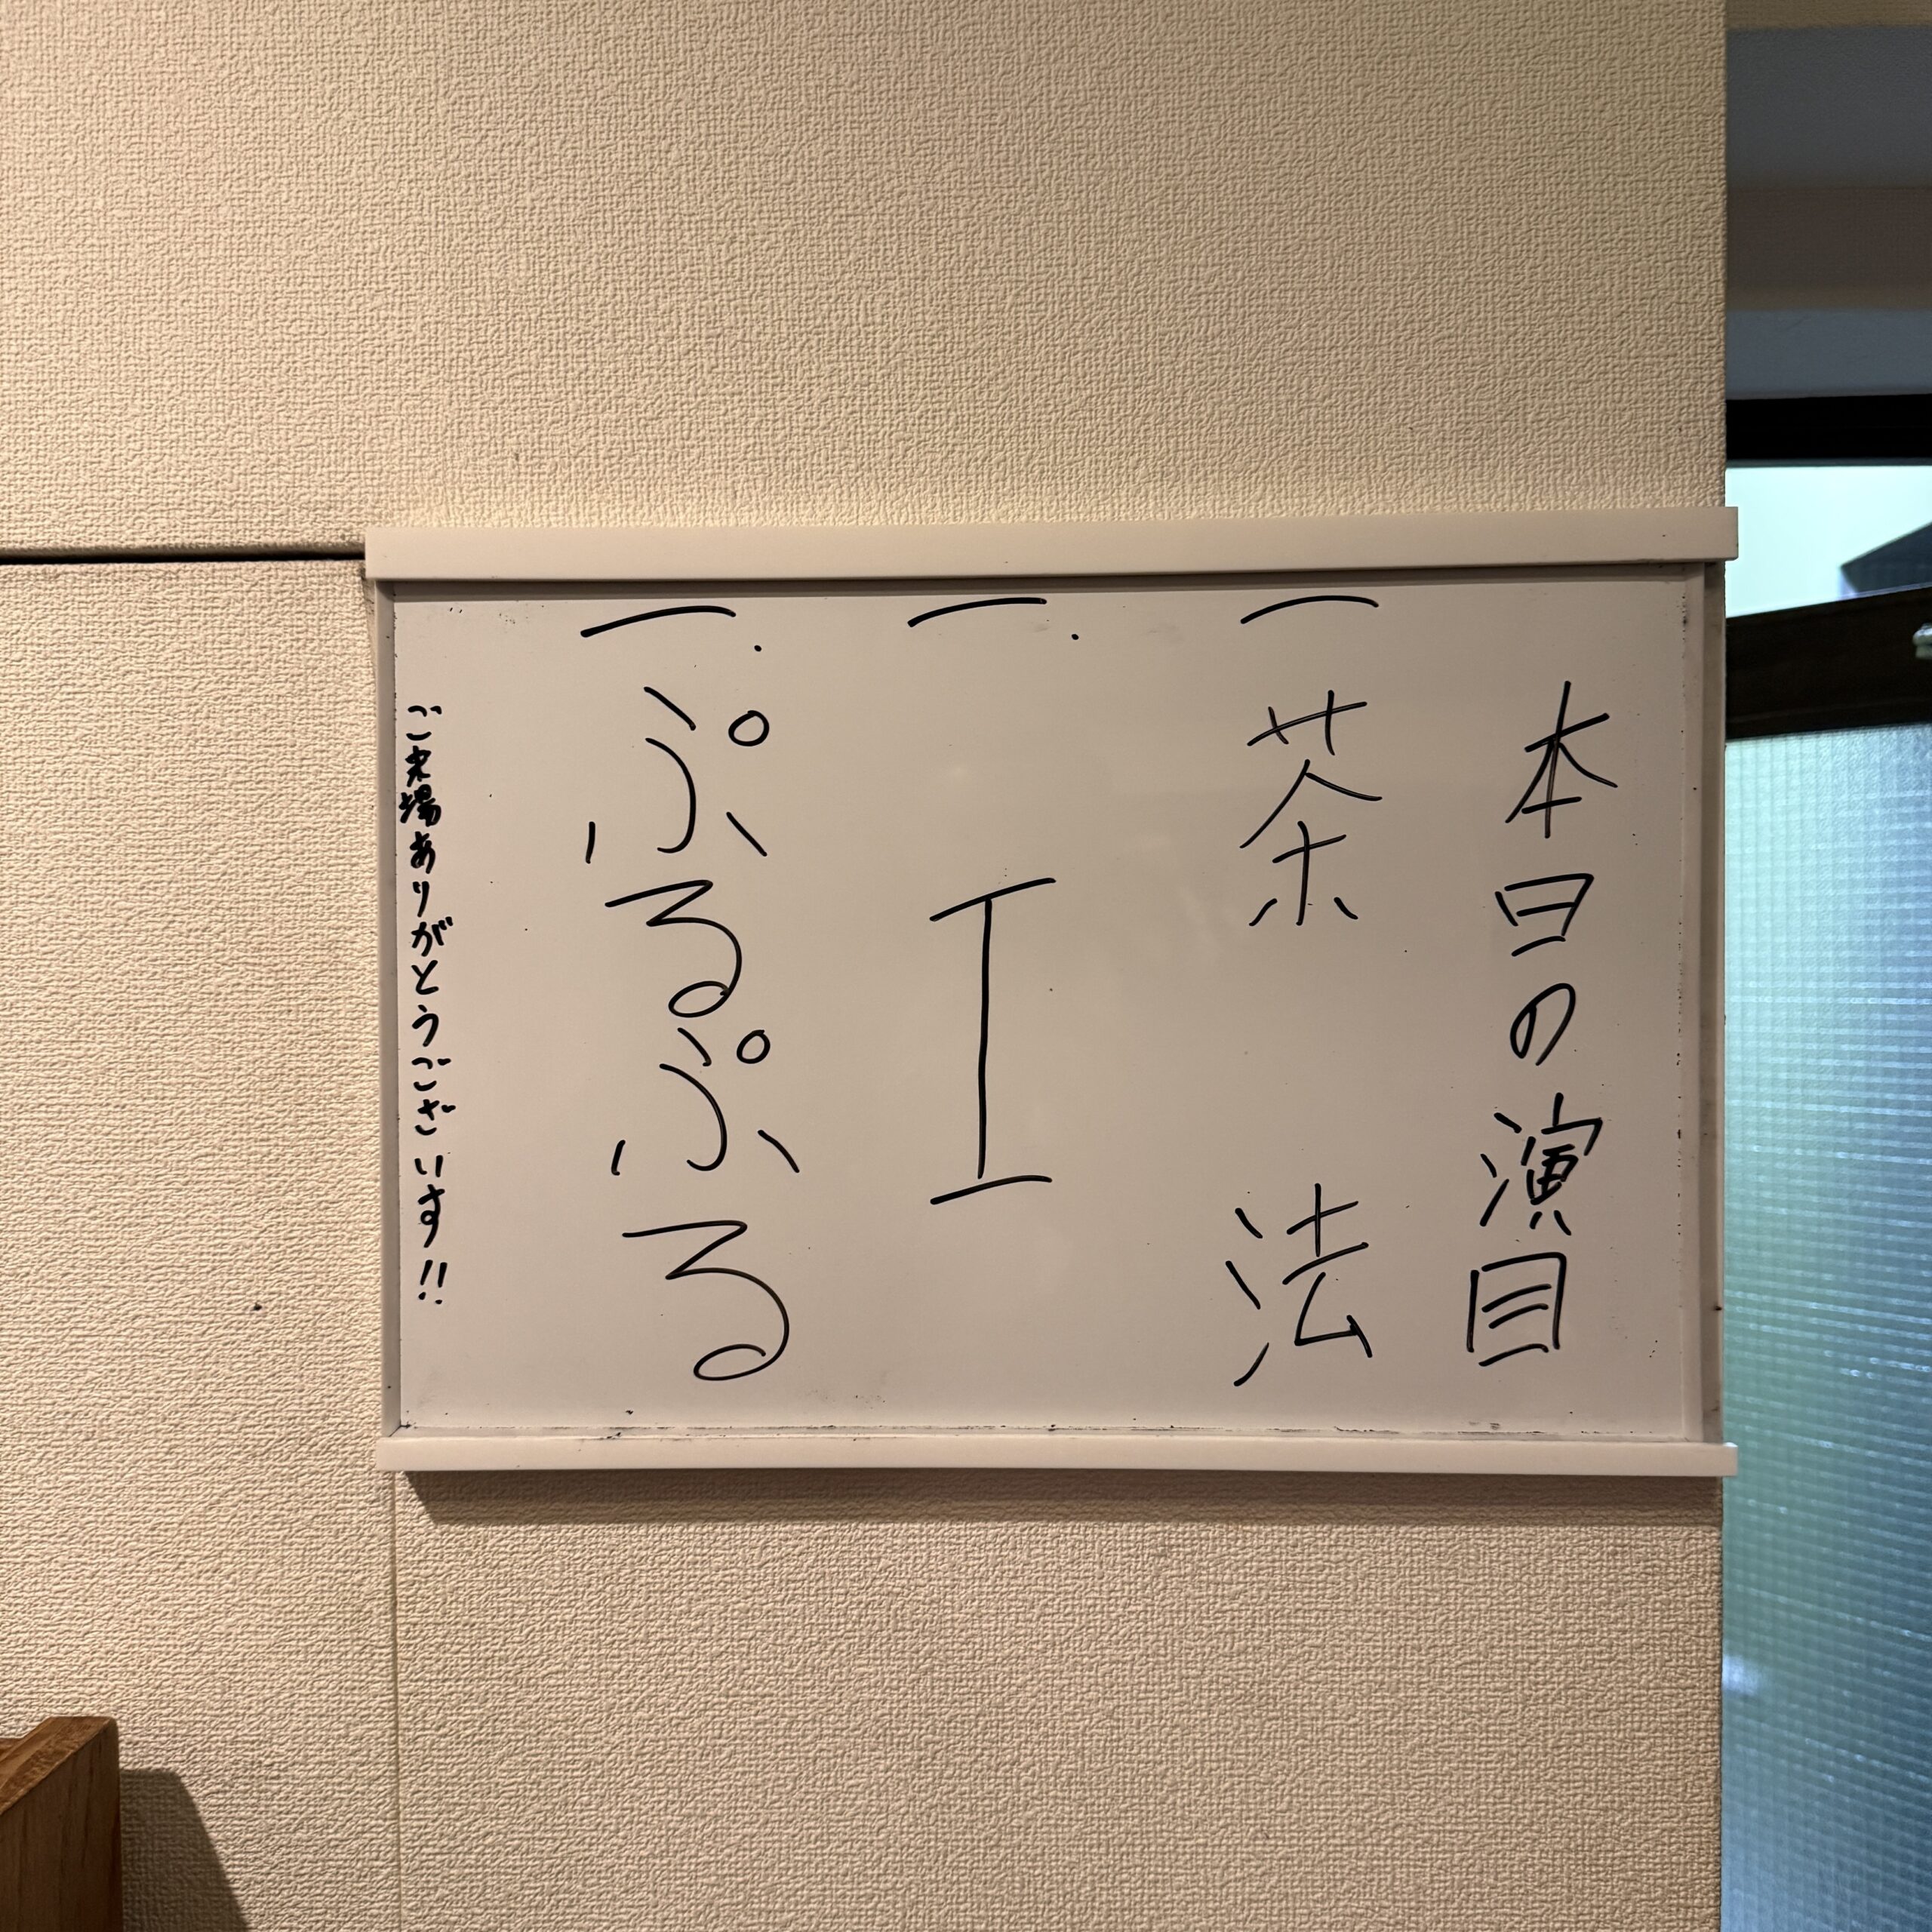 本日の演目
一 茶 法
一. I
一. ぷるぷる
ご来場ありがとうございます!!